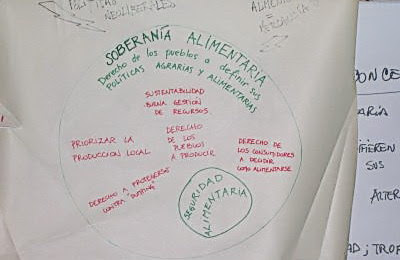 NEOLIBERALES
SOBERANÍA ALIMENTARIA
Derecho de los pueblos a definir sus
POLÍTICAS AGRARIAS Y ALIMENTARIAS
SUSTENTABILIDAD
BUNA GESTIÓN
DE RECURSOS
PRIORIZAR LA
PRODUCCIÓN LOCAL
DERECHO
DE LOS
PUEBLOS
A PRODUCIR
DERECHO DE
LOS CONSUMIDORES
A DECIDIR
COMO ALIMENTARSE
DERECHO A PROTEGERSE
CONTRA "DUMPING"
SEGURIDAD
ALIMENTARIA
ON CE
ARÍA
FIEREN
SUS
ALTER
AD; TROF